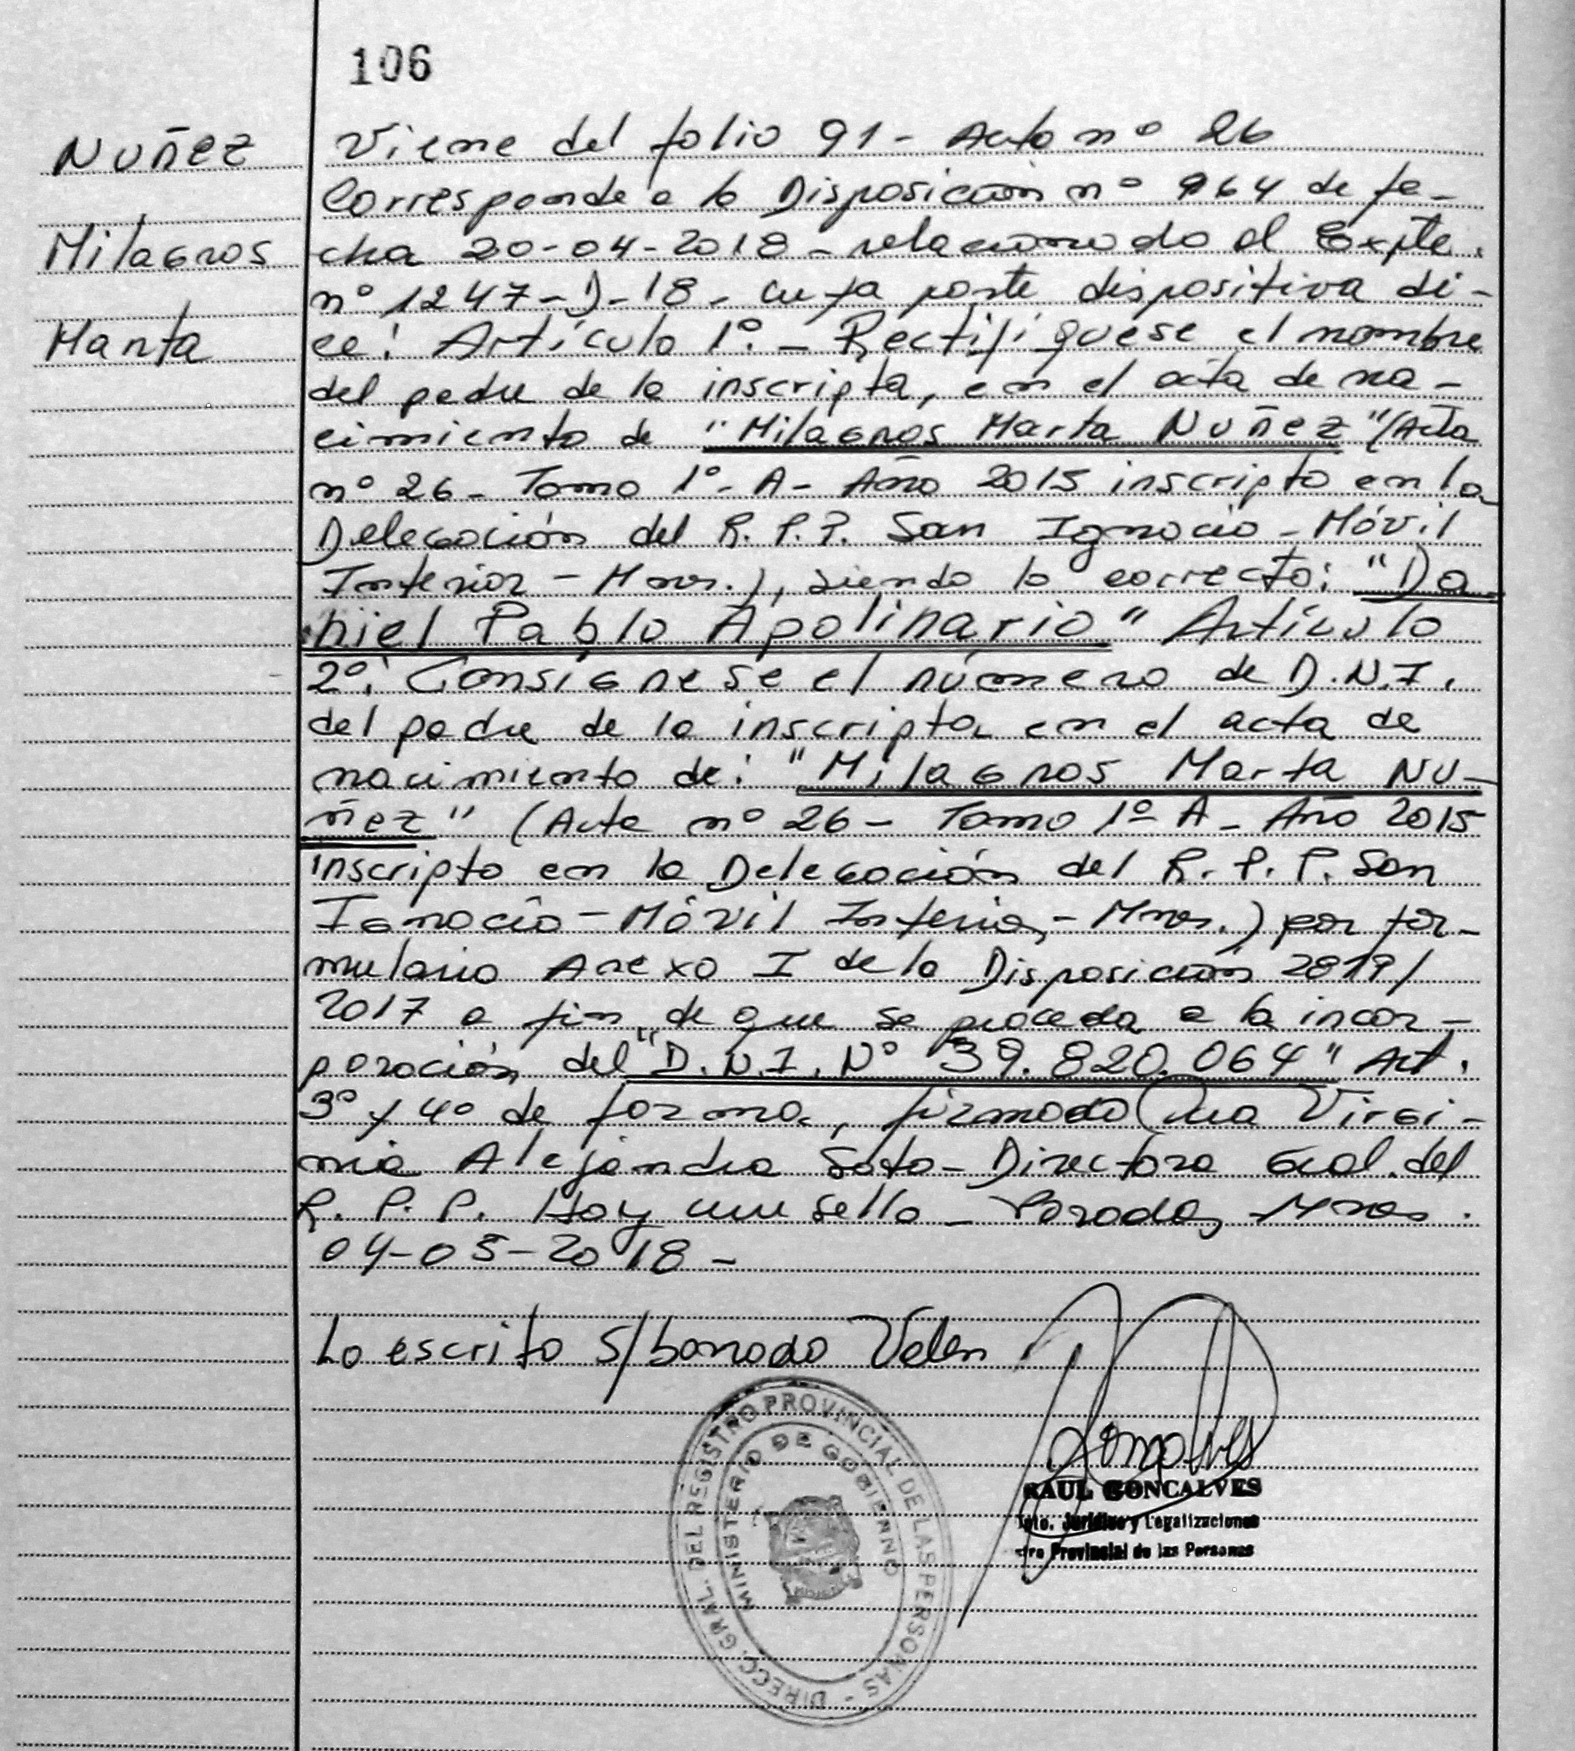 106
Nuñez
Milagros
Marta
Viene del folio 91 - Acta nº 26
Corresponde a la Disposición nº 964 de fe-
cha 20-04-2018 - relacionado al Expte.
nº 1247-D-18 - cuya parte dispositiva di-
ce: Artículo 1º - Rectifíquese el nombre
del padre de la inscripta, en el acta de na-
cimiento de "Milagros Marta Nuñez" (Acta
nº 26 - Tomo 1º - A - Año 2015 inscripto en la
Delegación del R.P.P. San Ignacio - Móvil
Interior - Mnes.), siendo lo correcto: "Da
niel Pablo Apolinario" Artículo
2º: Consígnese el número de D.N.I.
del padre de la inscripta en el acta de
nacimiento de: "Milagros Marta Nu-
ñez" (Acta nº 26 - Tomo 1º A - Año 2015
inscripto en la Delegación del R.P.P. San
Ignacio - Móvil Interior - Mnes.) por for-
mulario Anexo I de la Disposición 2819/
2017 a fin de que se proceda a la incor-
poración del "D.N.I. Nº 39.820.064" Art.
3º y 4º de forma, firmado Dra Virgi-
nia Alejandra Soto - Directora Gral. del
R.P.P. Hay un sello - Posadas, Mnes.
04-05-2018 -
Lo escrito s/borrado Vale
Gonçalves
RAUL GONCALVES
Dpto. Jurídico y Legalizaciones
tro Provincial de las Personas
DIRECC. GRAL. DEL REGISTRO PROVINCIAL DE LAS PERSONAS -
MINISTERIO DE GOBIERNO